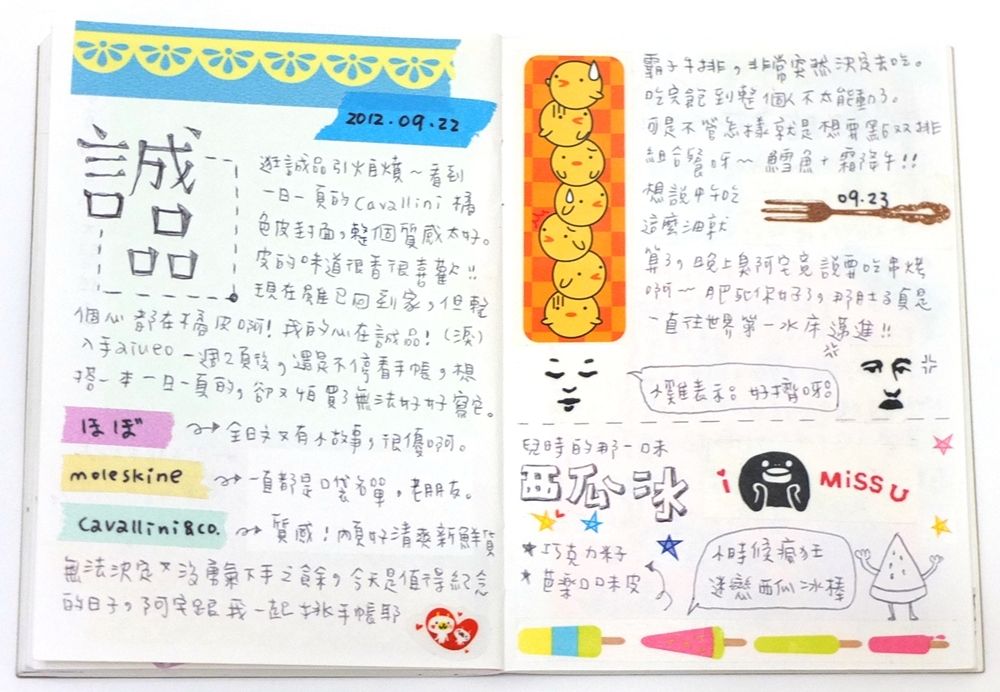 2012.09.22
誠品
逛誠品引火自燒～看到
一日一頁的 Cavallini 橘
色皮封面，整個質感太好。
皮的味道很香很喜歡!!
現在雖已回到家，但整
個心都在橘皮啊! 我的心在誠品! (淚)
入手aiueo一週2頁後，還是不停看手帳，想
搭一本一日一頁的，卻又怕買了無法好好寫它。
ほぼ
全日文又有小故事，很優啊。
moleskine
一直都是口袋名單，老朋友。
Cavallini & co.
質感! 內頁好清爽新鮮貨
無法決定×沒勇氣下手之餘，今天是值得紀念
的日子，阿宅跟我一起挑手帳耶
霸子牛排，非常突然決定去吃。
吃完飽到整個人不太能動了。
可是不管怎樣就是想要點双排
組合餐呀～ 鱈魚+霜降牛!!
想說中午吃
這麼油就
09.23
算了，晚上臭阿宅竟說要吃串烤
啊～ 肥死你好了，那肚子真是
一直往世界第一水床邁進!!
小雞表示：好擠呀。
兒時的那一味
西瓜冰
i MiSS U
★巧克力米子
★芭樂口味皮
小時候瘋狂
迷戀西瓜冰棒